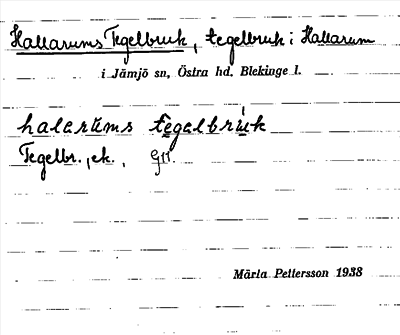 Hallarums Tegelbruk, tegelbruk i Hallarum
i Jämjö sn, Östra hd. Blekinge l.
halarŭms tegəlbrùk
Tegelbr., ek.,
Märta Pettersson 1938